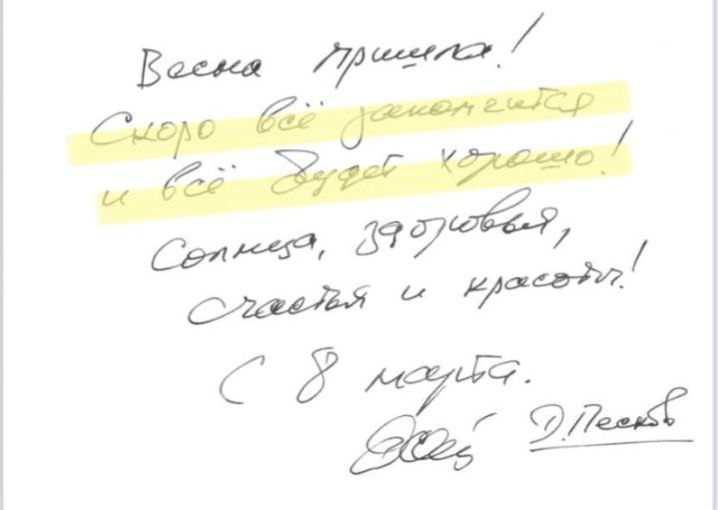 Весна пришла!
Скоро всё закончится
и всё будет хорошо!
Солнца, здоровья,
счастья и красоты!
С 8 марта.
Д. Песков